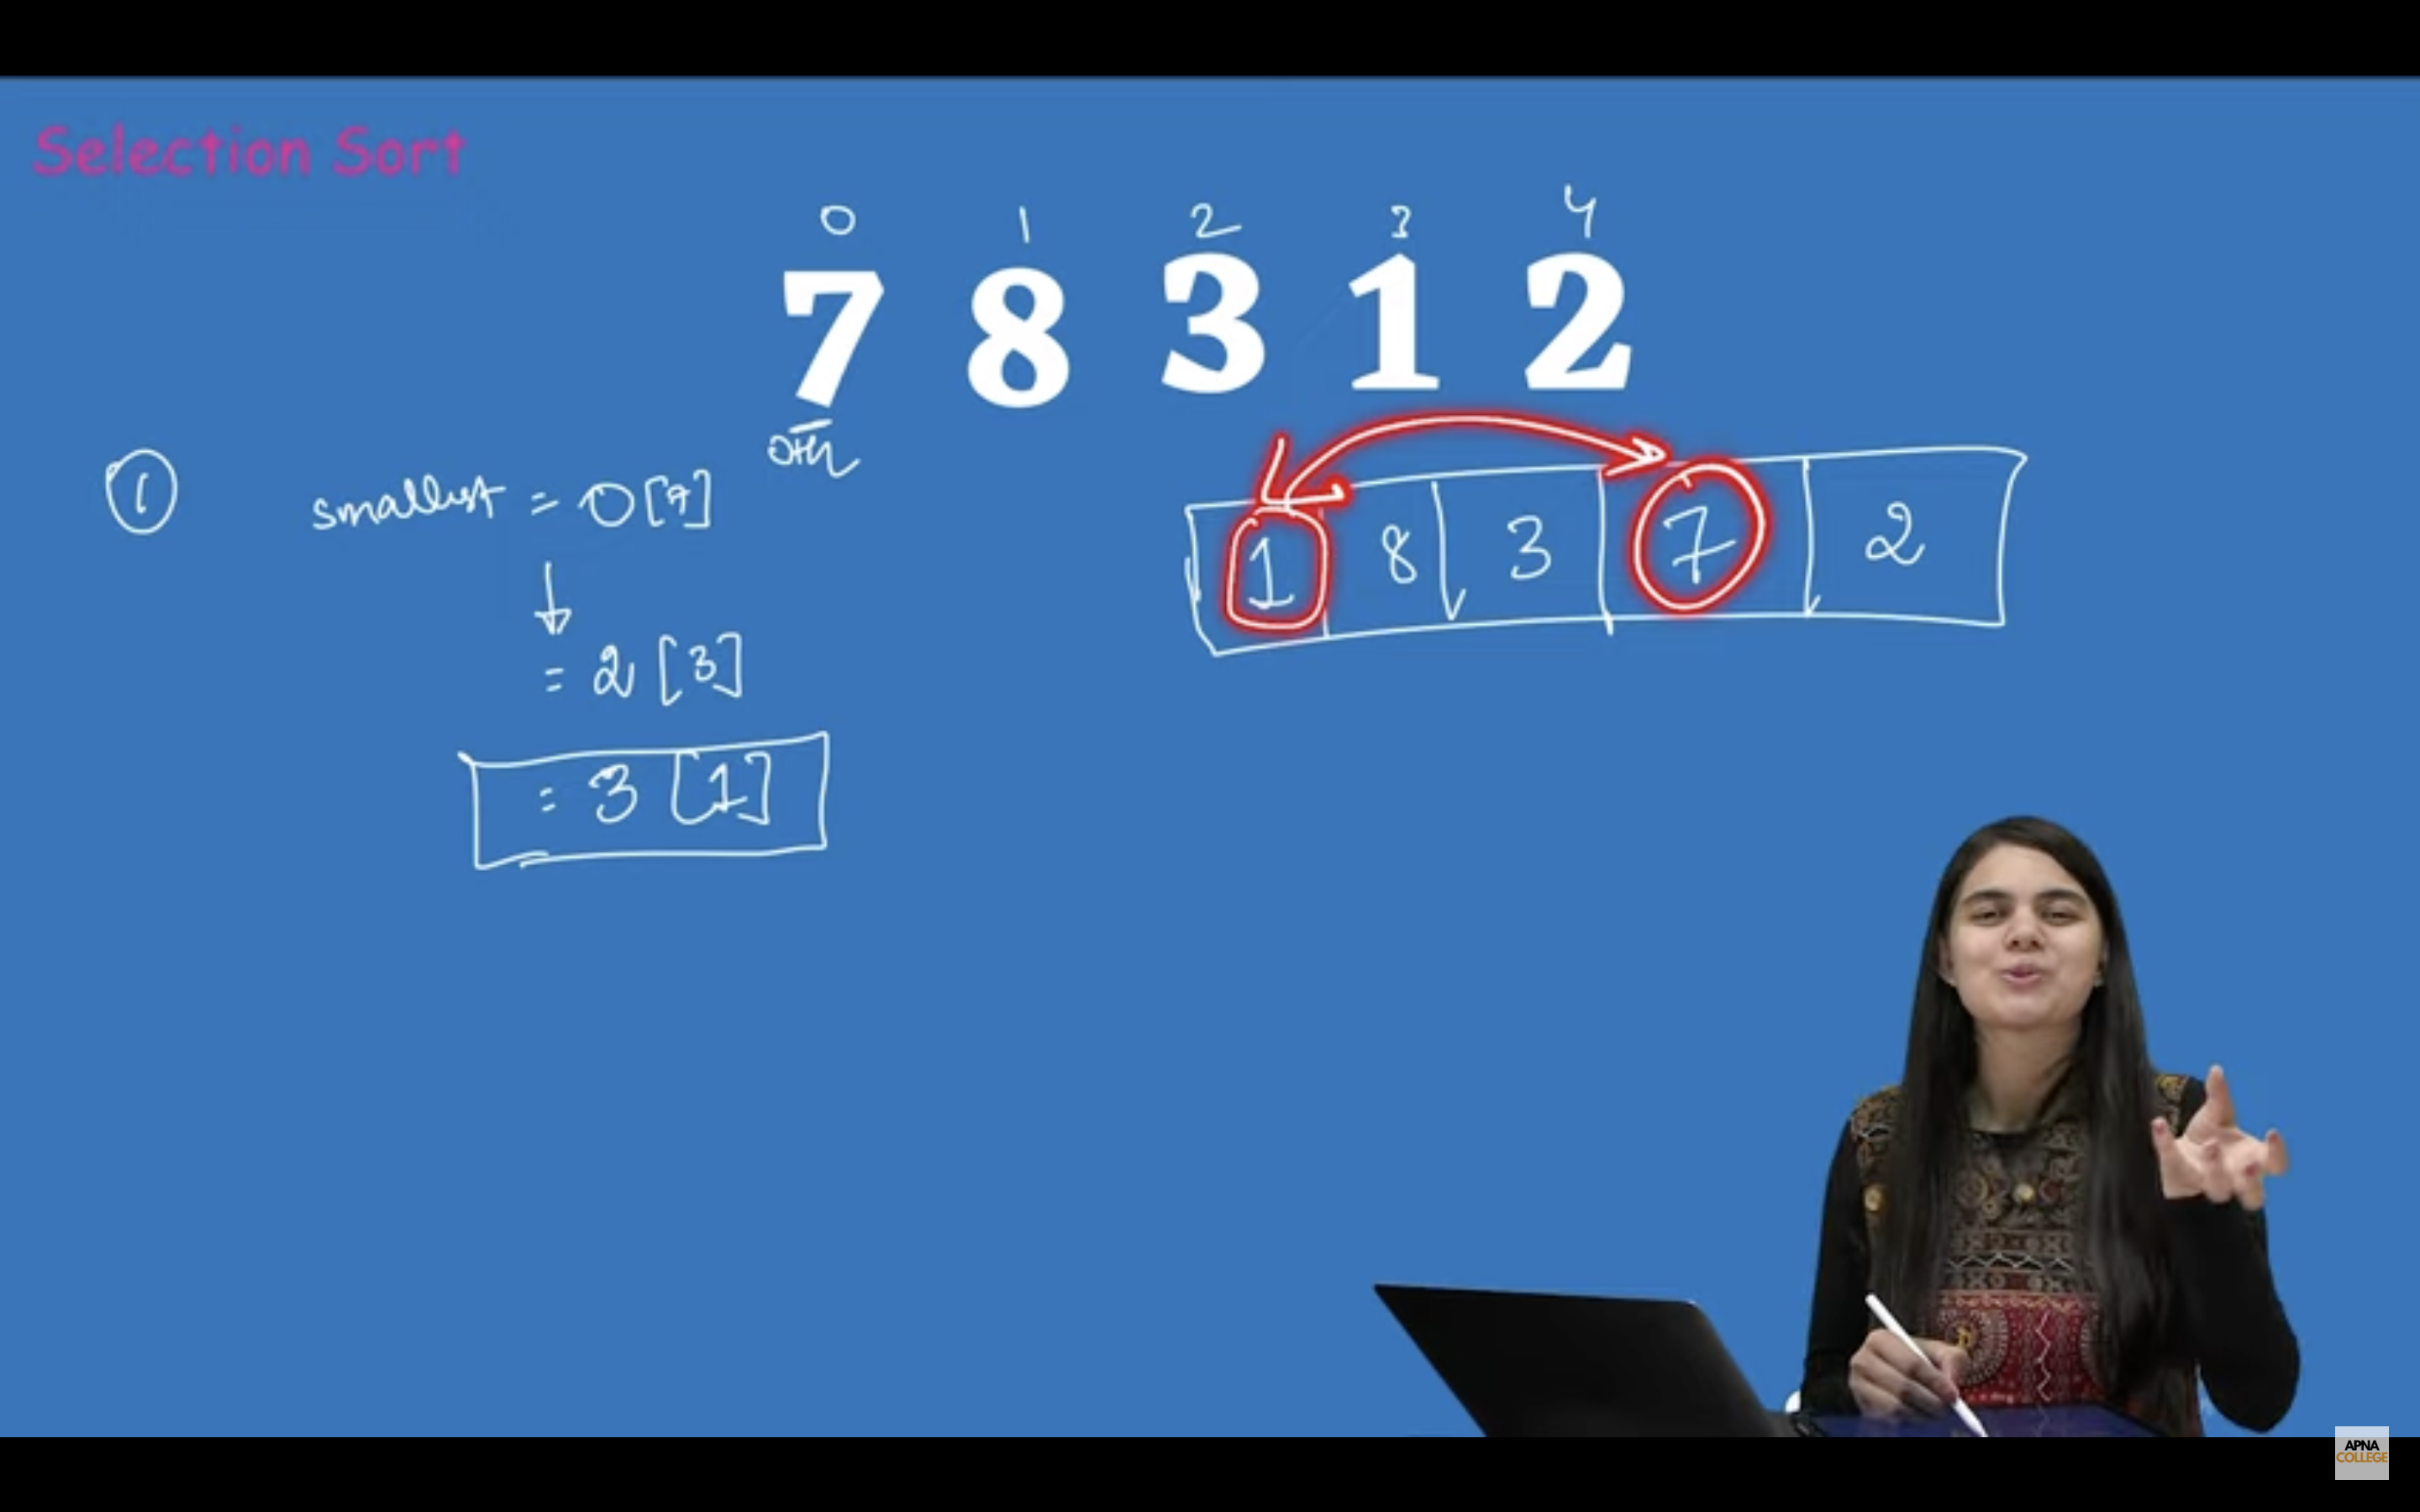 Selection Sort
0 1 2 3 4
7 8 3 1 2
0th
1
smallest = 0[7]
= 2[3]
= 3[1]
1 8 3 7 2
APNA
COLLEGE